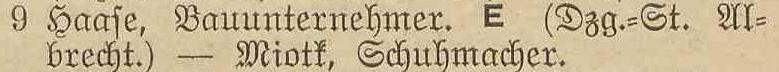 9 Haaſe, Bauunternehmer. E (Dzg.=St. Al=
brecht.) — Miotk, Schuhmacher.